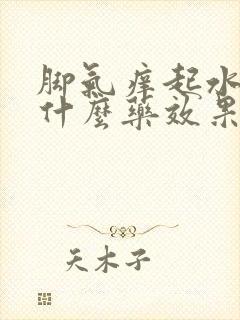 脚氣痒起水
什麼藥效果
天木子